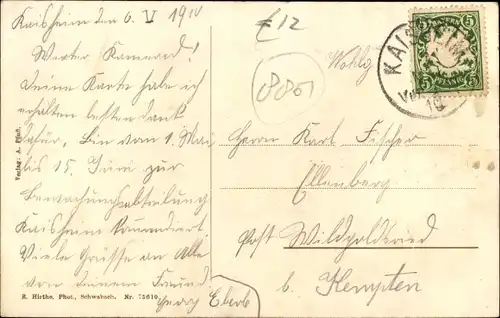 Kaisheim den 6. V 1910
£ 12
Werter Kamerad!
Deine Karte habe ich
erhalten besten Dank
dafür. Bin vom 1. Mai
bis 15. Juni zur
Bewachungsabteilung
Kaisheim kommandiert.
Viele Grüsse an Alle
von deinem Freund
Georg
(8801)
BAYERN
5 5
KAIS
Wohlg
Herrn Karl Fischer
Ellenberg
Post Wildpoldsried
b. Kempten
Verlag: A. Pfaff.
R. Hirthe, Phot., Schwabach. Nr. 75610